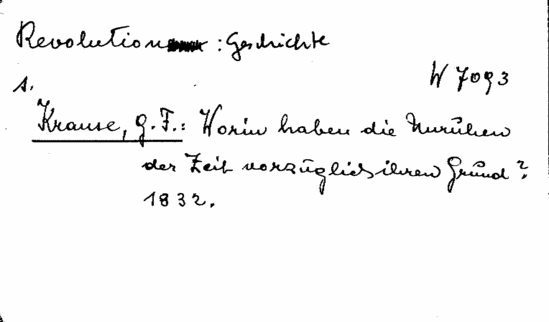 Revolution : Geschichte
W 7093
s.
Krause, G. F.: Worin haben die Unruhen
der Zeit vorzüglich ihren Grund?
1832.